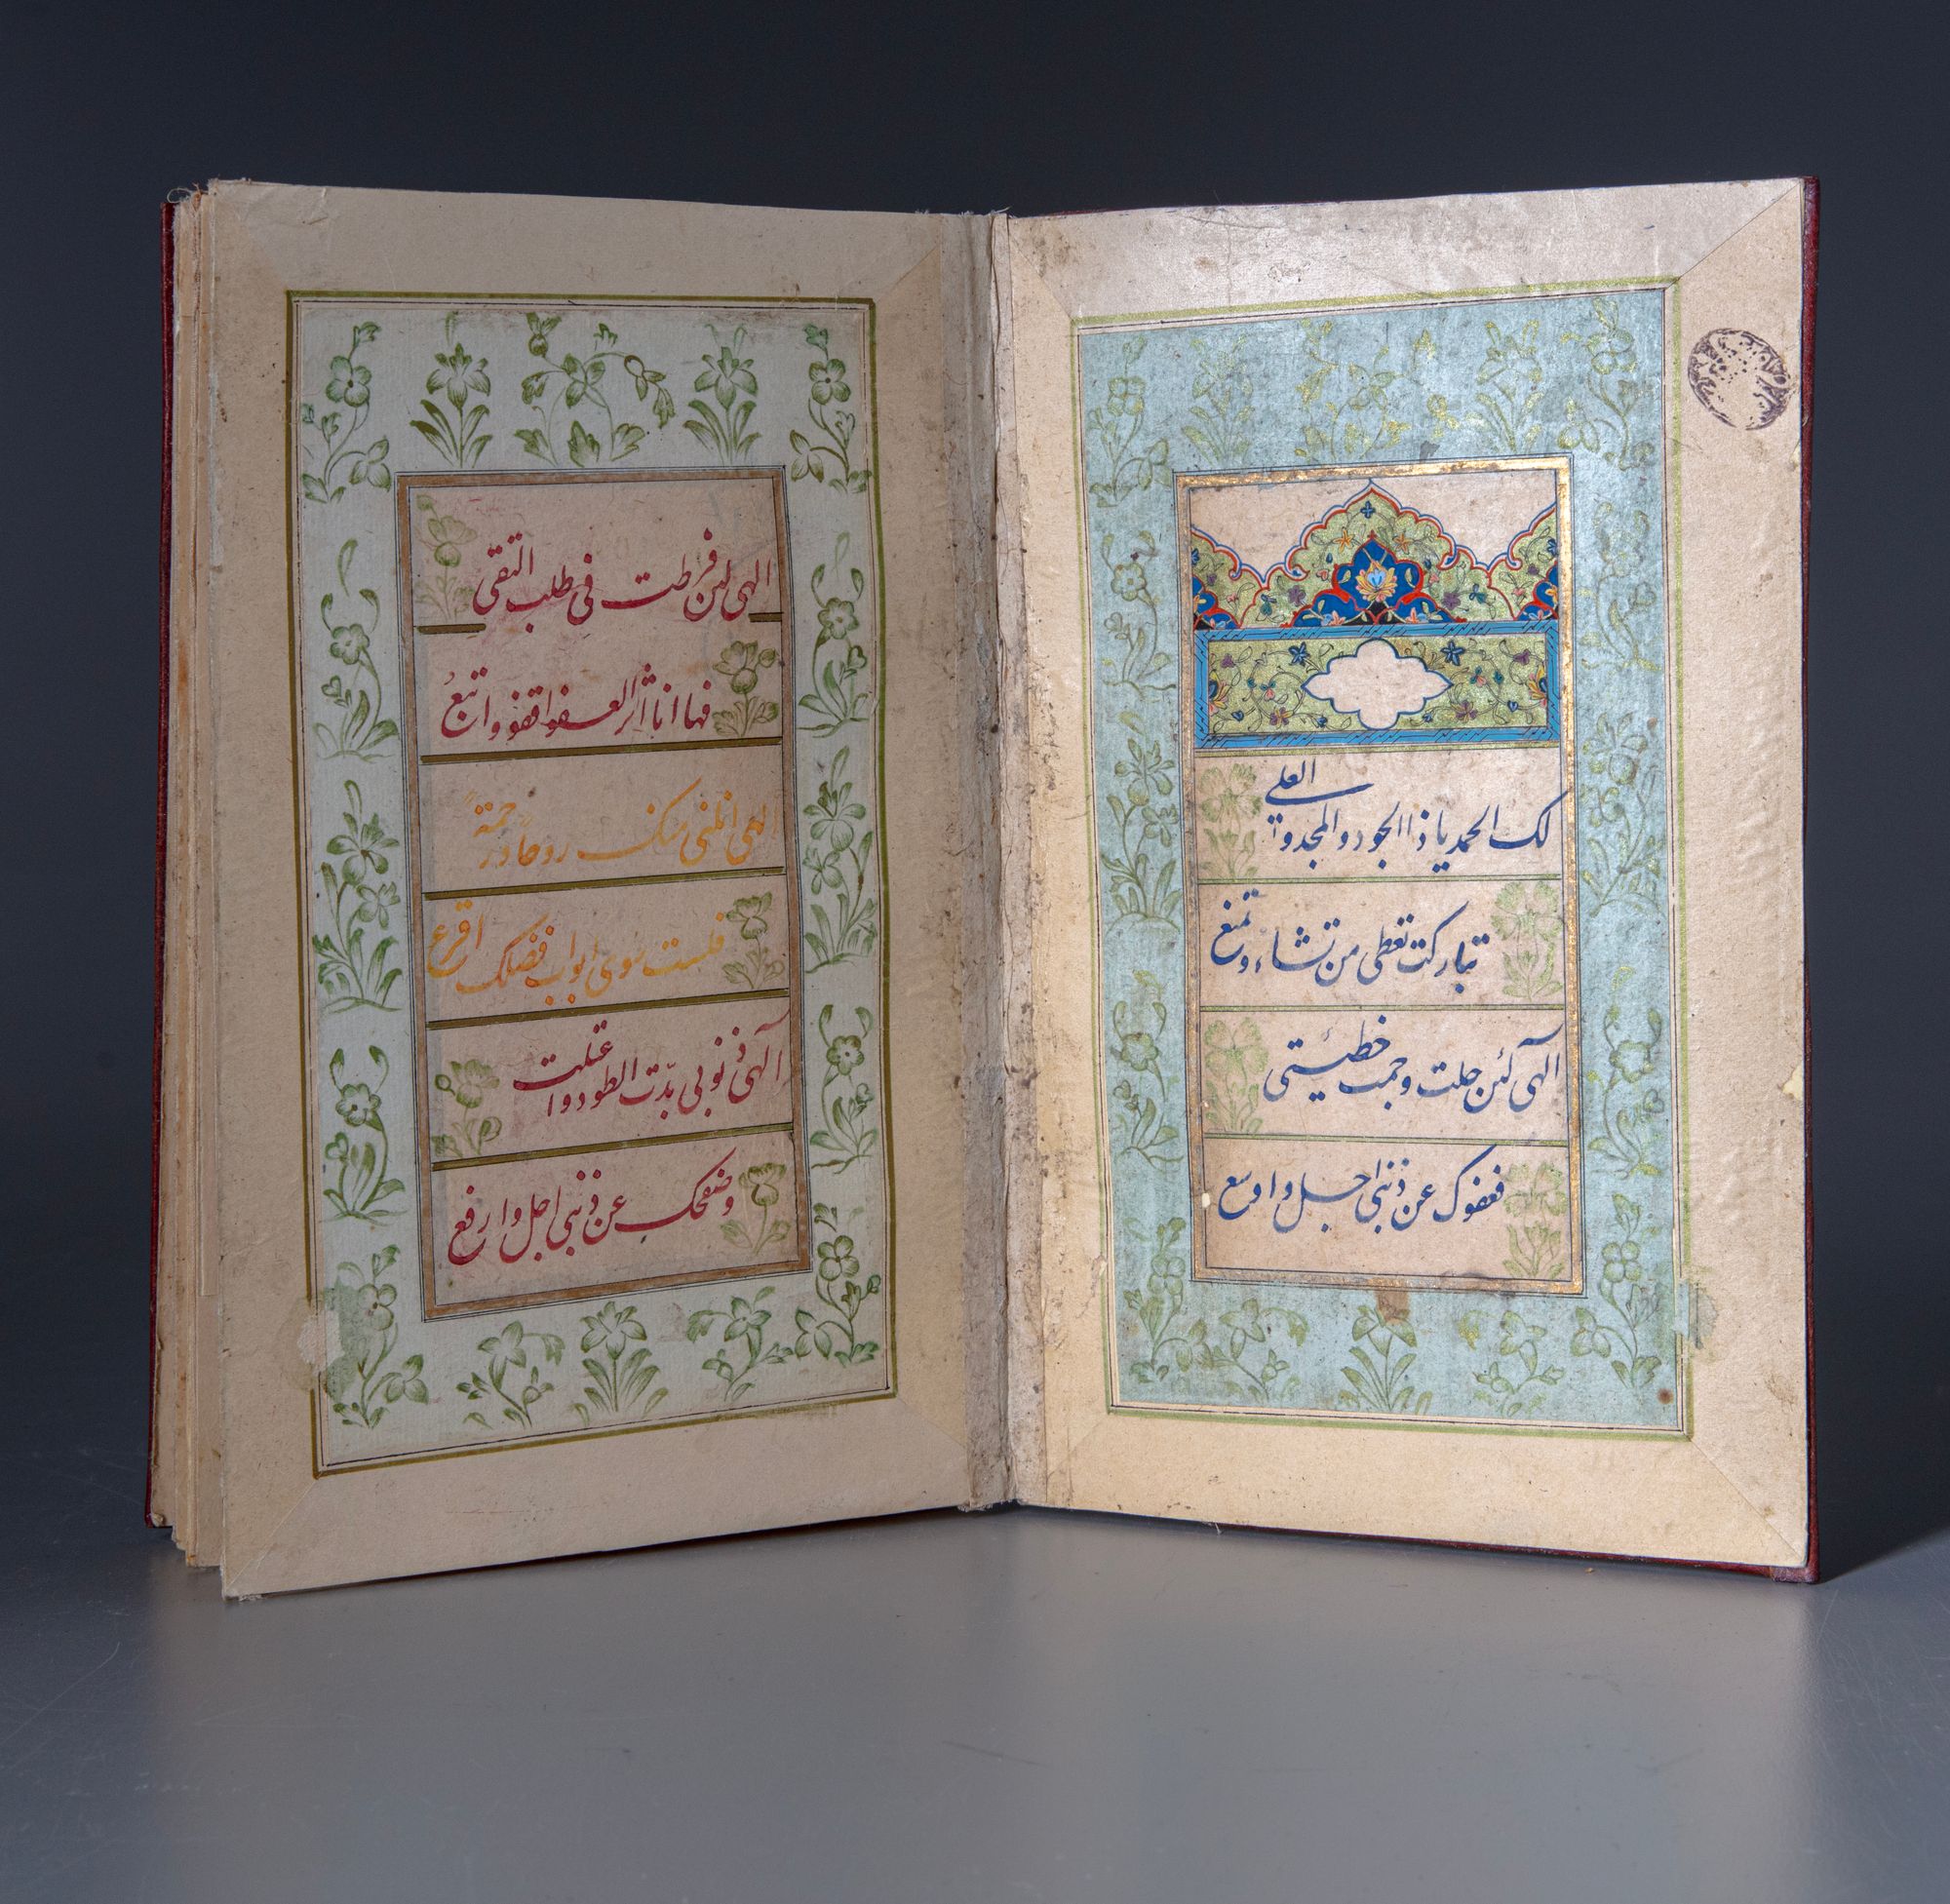 لك الحمد يا ذا الجود و المجد و العلى
تباركت تعطى من تشاء و تمنع
آلهى لئن جلت و جمت خطيئتى
فعفوك عن ذنبى اجل و اوسع
الهى لئن فرطت فى طلب التقى
فها انا اثر العفو اقفو و اتبع
الهى انلنى منك روحا و رحمة
فلست سوى ابواب فضلك اقرع
آلهى ذنوبى بذت الطود و اعتلت
و صفحك عن ذنبى اجل و ارفع